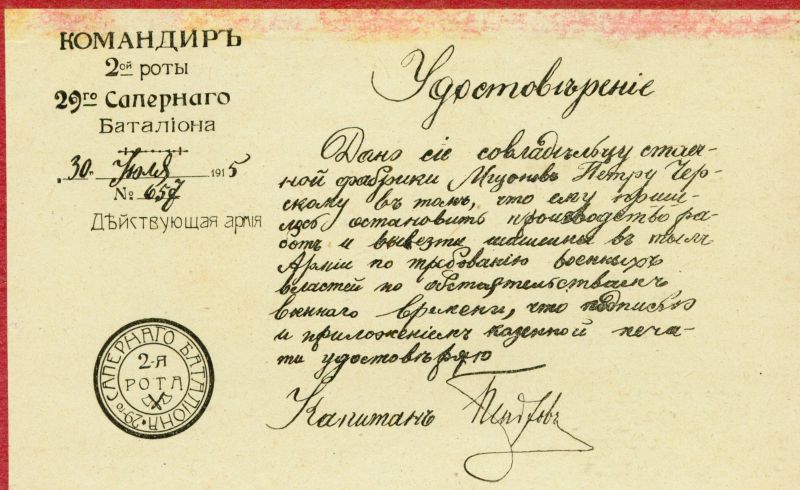 КОМАНДИРЪ
2ой роты
29го Сапернаго
Баталіона
30 Іюля 1915
№ 657
Дѣйствующая армія
Удостовѣреніе
Дано сіе совладѣльцу стаеч-
ной фабрики Петру Чер-
скому въ томъ, что ему приш-
лось остановить производство ра-
ботъ и вывезти машины въ тылъ
Арміи по требованію военныхъ
властей по обстоятельствамъ
военнаго времени, что подписью
и приложеніемъ казенной печа-
ти удостовѣряю
Капитанъ
29го САПЕРНАГО БАТАЛІОНА
2-я
РОТА